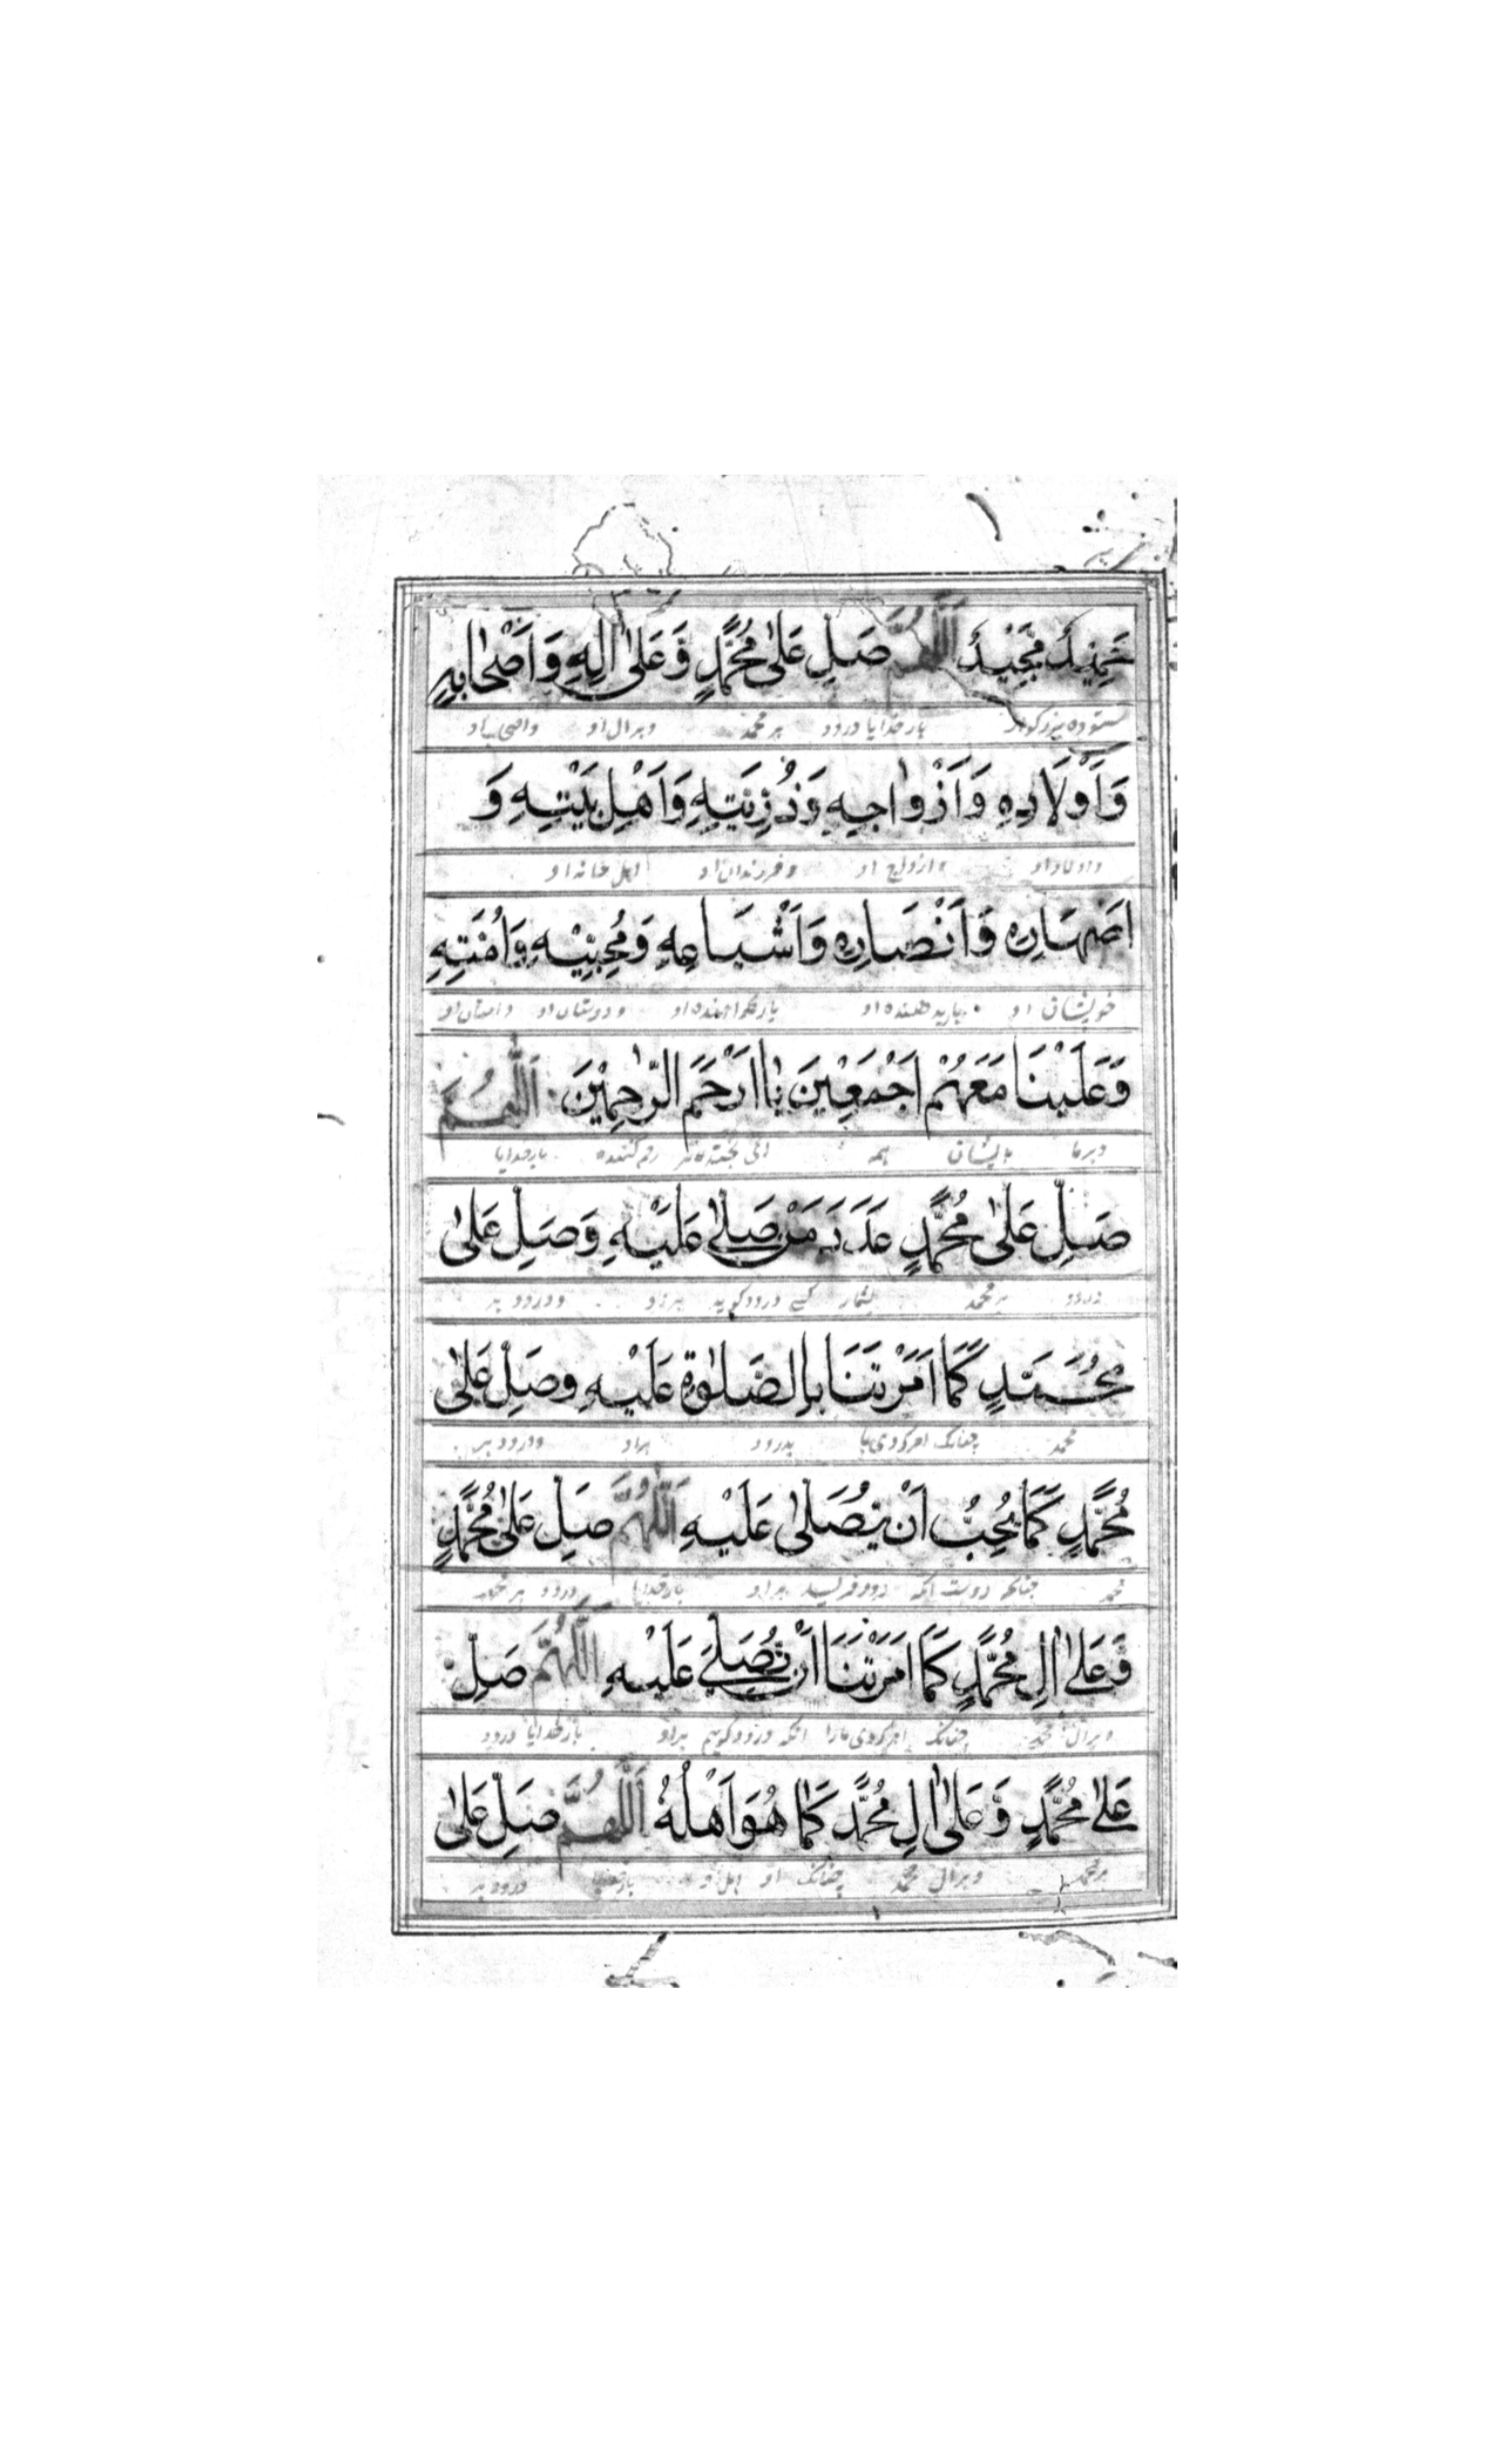 حَمِيْدٌ مَجِيْدٌ اَللّٰهُمَّ صَلِّ عَلٰى مُحَمَّدٍ وَّعَلٰى اٰلِهٖ وَاَصْحَابِهٖ
ستوده بزرگوار بارخدایا درود بر محمد وبرال او واصحاب او
وَاَوْلَادِهٖ وَاَزْوَاجِهٖ وَذُرِّيَّتِهٖ وَاَهْلِ بَيْتِهٖ وَ
واولاد او وازواج او وفرزندان او اهل خانه او
اَصْهَارِهٖ وَاَنْصَارِهٖ وَاَشْيَاعِهٖ وَمُحِبِّيْهِ وَاُمَّتِهٖ
خویشان او ودوستان او وامتان او
وَعَلَيْنَا مَعَهُمْ اَجْمَعِيْنَ يَا اَرْحَمَ الرّٰحِمِيْنَ اَللّٰهُمَّ
وبرما بایشان همه رحم کننده بارخدایا
صَلِّ عَلٰى مُحَمَّدٍ عَدَدَ مَنْ صَلّٰى عَلَيْهِ وَصَلِّ عَلٰى
درود بر محمد بشمار کسے درود گوید براو ودرود بر
مُحَمَّدٍ كَمَا اَمَرْتَنَا بِالصَّلٰوةِ عَلَيْهِ وصَلِّ عَلٰى
محمد چنانکه امر کردی ما بدرود براو ودرود بر
مُحَمَّدٍ كَمَا يُحِبُّ اَنْ يُّصَلّٰى عَلَيْهِ اَللّٰهُمَّ صَلِّ عَلٰى مُحَمَّدٍ
محمد چنانکه براو بارخدایا درود بر محمد
وَّعَلٰى اٰلِ مُحَمَّدٍ كَمَا اَمَرْتَنَا اَنْ نُّصَلِّيَ عَلَيْهِ اَللّٰهُمَّ صَلِّ
وبرال محمد چنانکه امر کردی مارا انکه درود گویم براو بارخدایا درود
عَلٰى مُحَمَّدٍ وَّعَلٰى اٰلِ مُحَمَّدٍ كَمَا هُوَ اَهْلُهٗ اَللّٰهُمَّ صَلِّ عَلٰى
بر محمد وبرال محمد چنانکه او اهل او بارخدایا درود بر